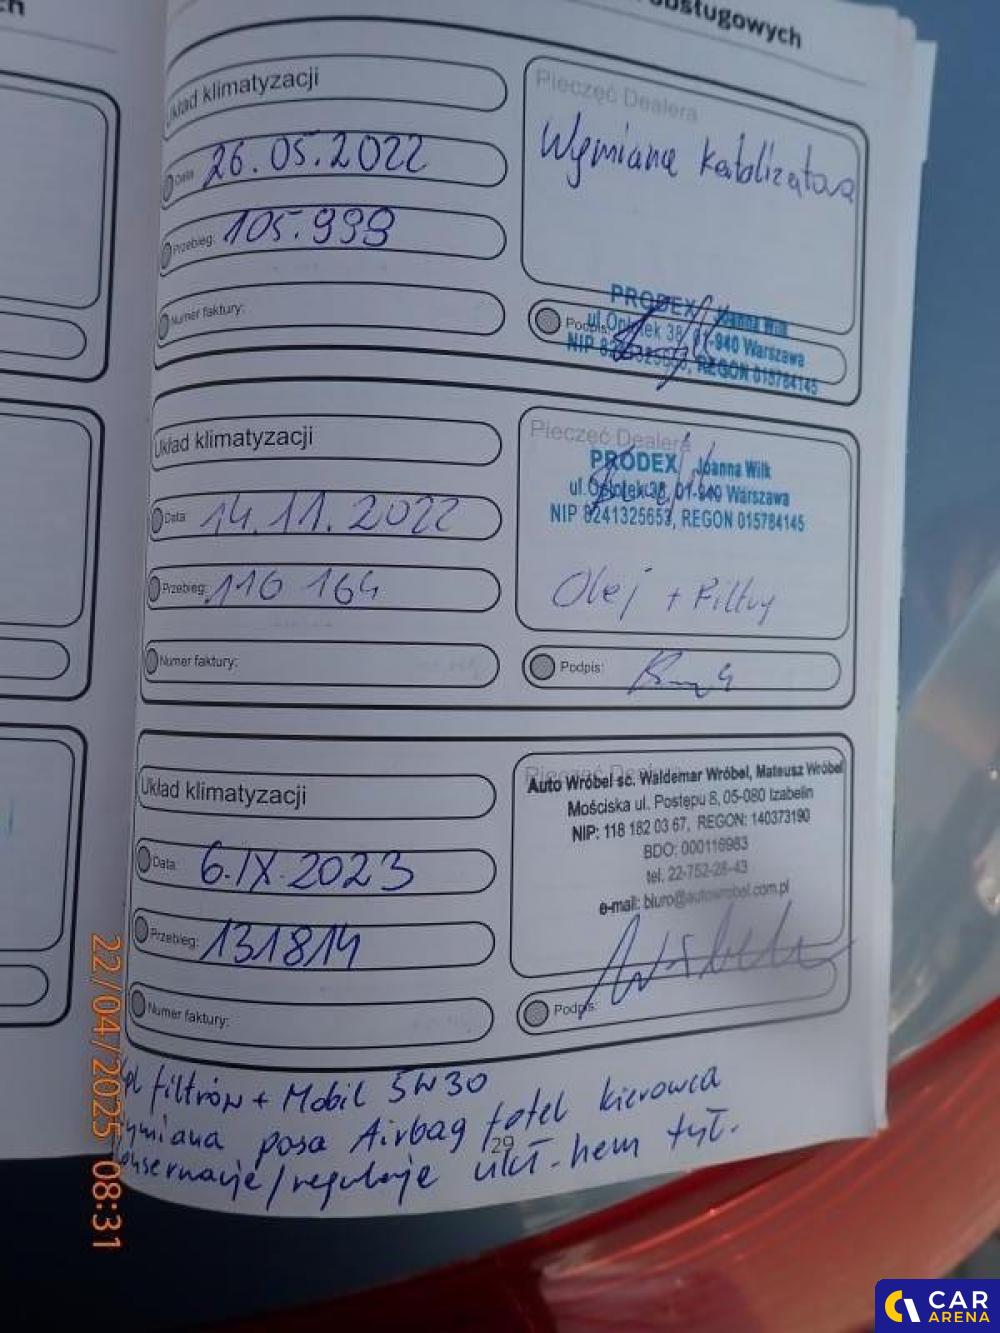 ch
obsługowych
Układ klimatyzacji
Data: 26.05.2022
Przebieg: 105.999
Numer faktury:
Pieczęć Dealera
Wymiana katalizatora
PRODEX Joanna Wilk
ul. 38, 01-940 Warszawa
NIP REGON 015784145
Podpis:
Układ klimatyzacji
Data: 14.11.2022
Przebieg: 116 164
Numer faktury:
Pieczęć Dealera
PRODEX Joanna Wilk
ul. 38, 01-940 Warszawa
NIP 8241325653, REGON 015784145
Olej + Filtry
Podpis:
Układ klimatyzacji
Data: 6.IX.2023
Przebieg: 131814
Numer faktury:
Pieczęć Dealera
Auto Wróbel sc. Waldemar Wróbel, Mateusz Wróbel
Mościska ul. Postępu 8, 05-080 Izabelin
NIP: 118 182 03 67, REGON: 140373190
BDO: 000116983
tel. 22-752-28-43
e-mail: biuro@autowrobel.com.pl
Podpis:
kpl filtrów + Mobil 5W30
wymiana pasa Airbag fotel kierowca
konserwacje/regulacje ukł. ham tył.
29
22/04/2025 08:31
CAR
ARENA